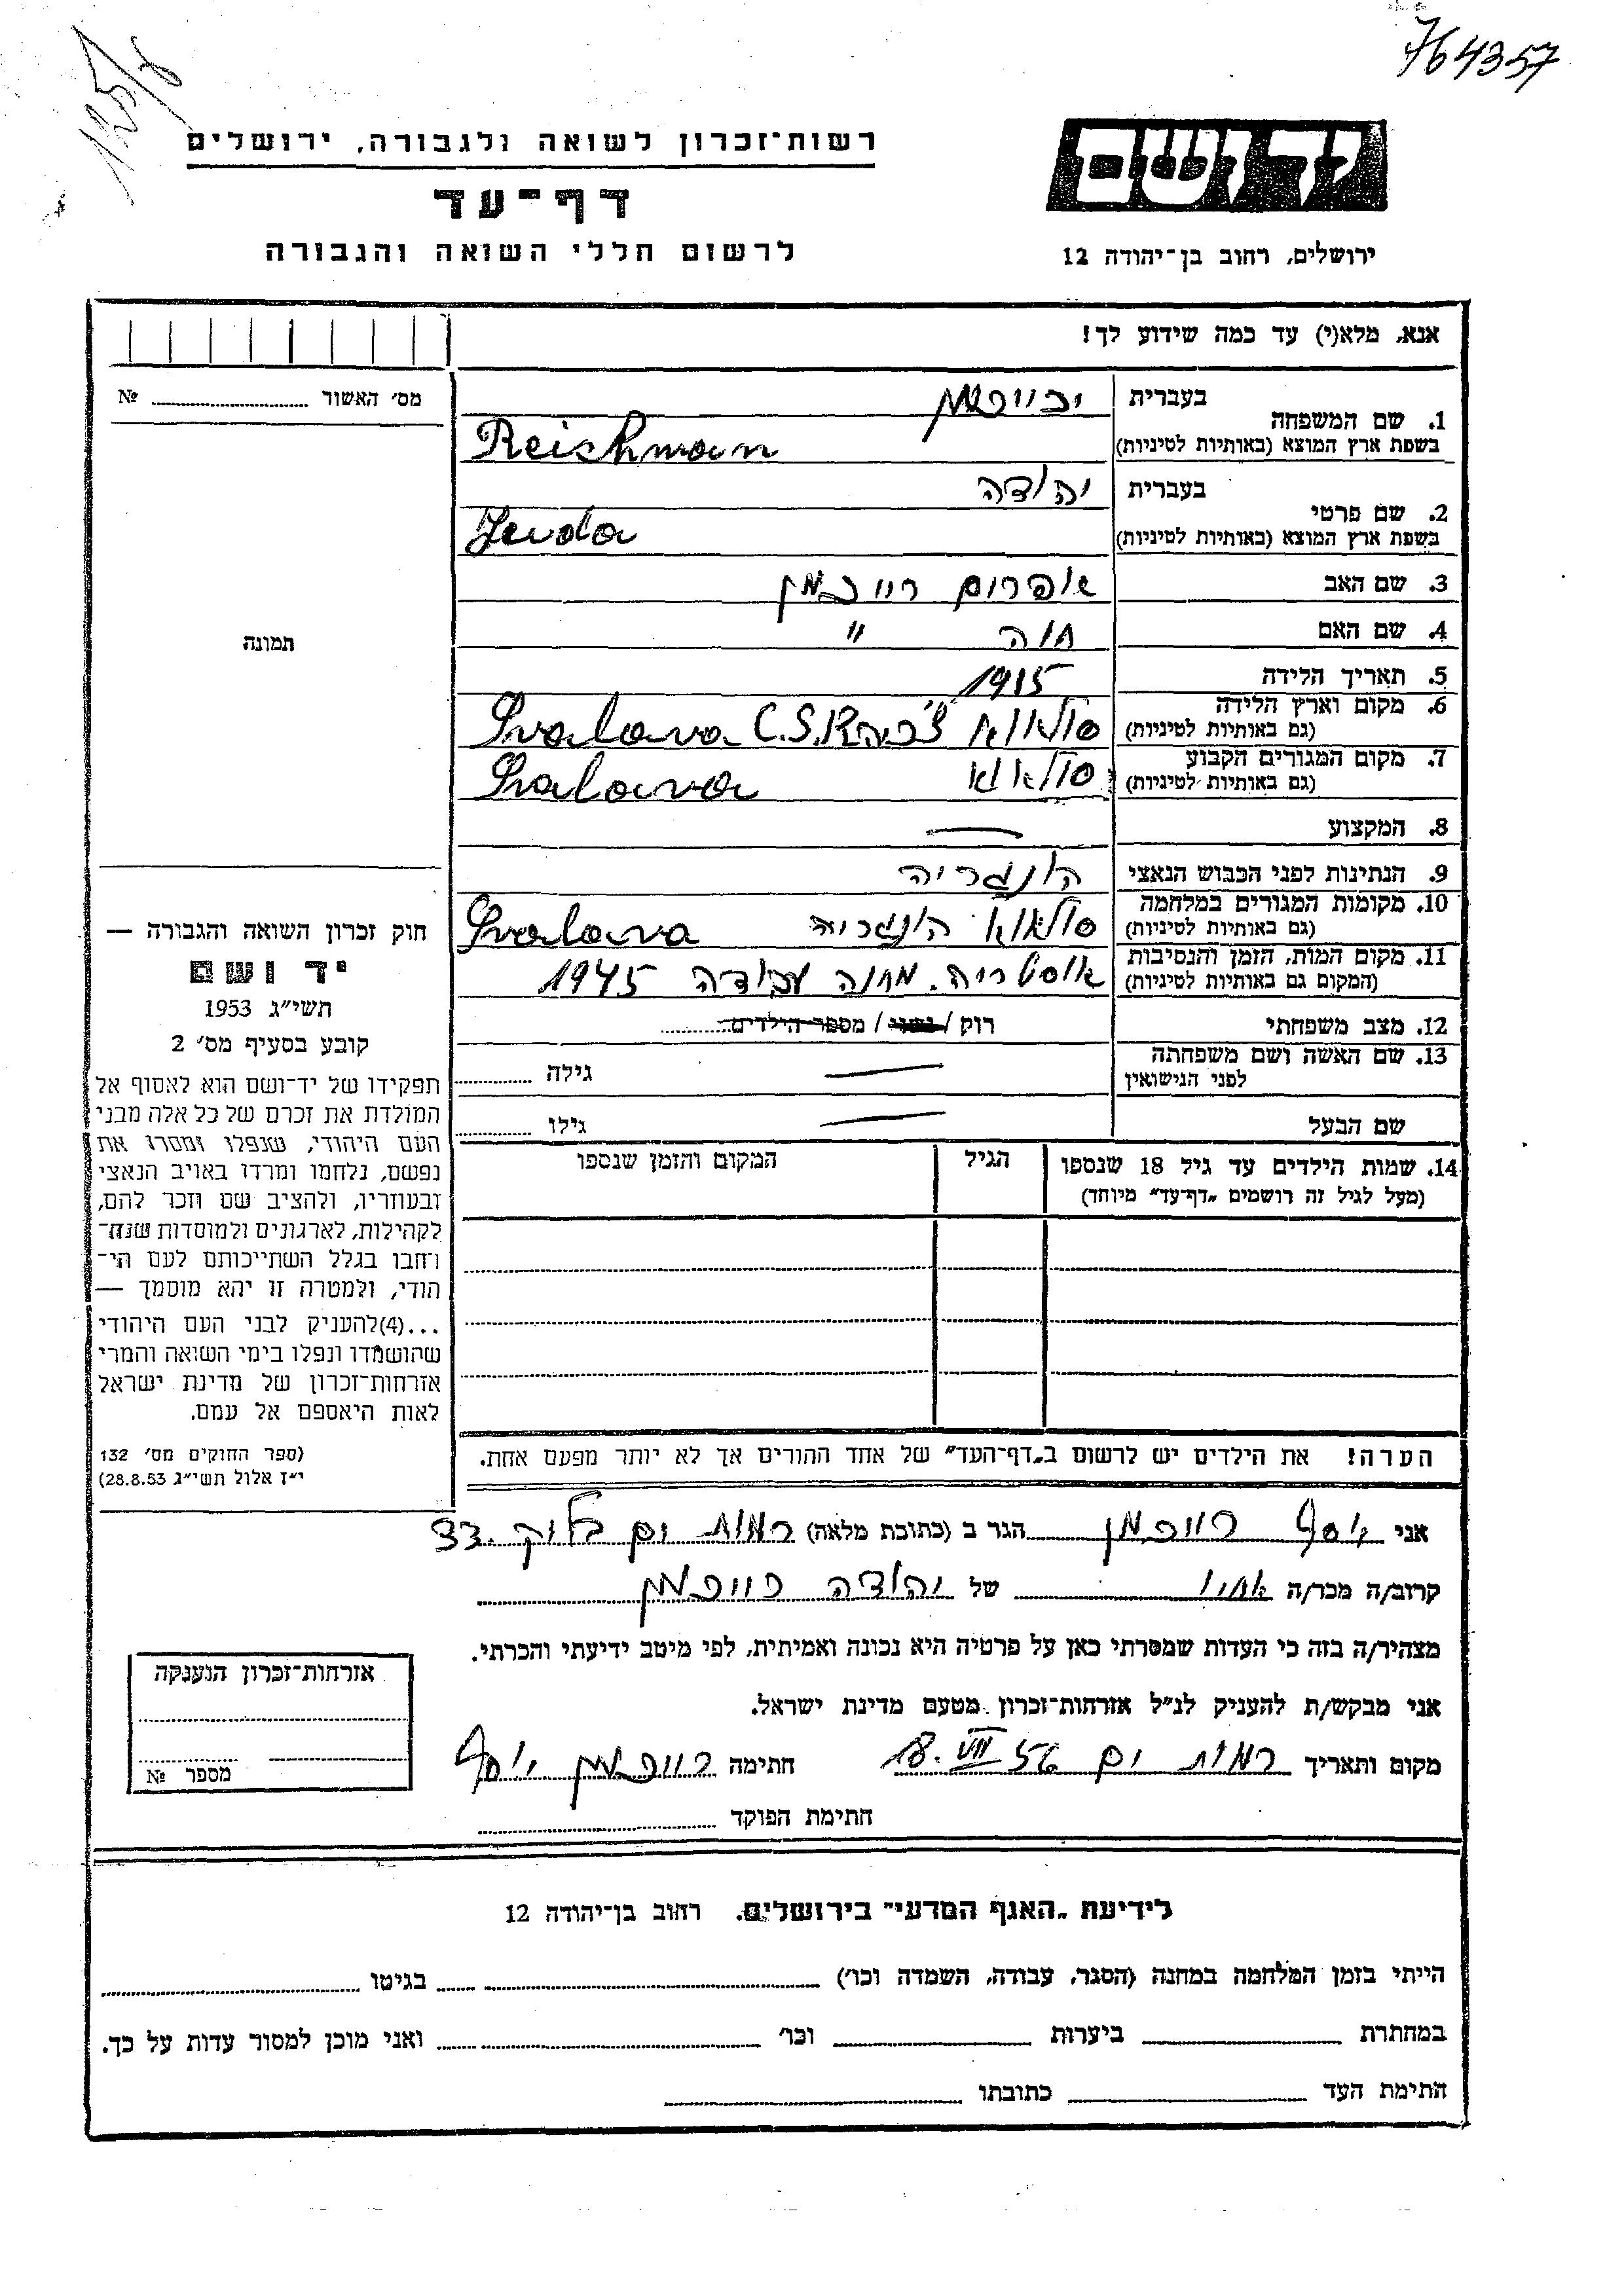 764357
רשות־זכרון לשואה ולגבורה, ירושלים
דף־עד
לרשום חללי השואה והגבורה
יד ושם
ירושלים, רחוב בן־יהודה 12
אנא, מלא(י) עד כמה שידוע לך!
מס׳ האשור № 
תמונה
1. שם המשפחה
בעברית רייכמן
בשפת ארץ המוצא (באותיות לטיניות) Reichman
2. שם פרטי
בעברית יהודה
בשפת ארץ המוצא (באותיות לטיניות) Jeuda
3. שם האב אפרים רייכמן
4. שם האם חוה "
5. תאריך הלידה 1915
6. מקום וארץ הלידה
(גם באותיות לטיניות) סולאווא Svalava C.S.R.
7. מקום המגורים הקבוע
(גם באותיות לטיניות) סולאווא Svalava
8. המקצוע —
9. הנתינות לפני הכבוש הנאצי הונגריה
10. מקומות המגורים במלחמה
(גם באותיות לטיניות) סולאווא הונגריה Svalava
11. מקום המות, הזמן והנסיבות
(המקום גם באותיות לטיניות) אוסטריה. מחנה עבודה 1945
12. מצב משפחתי רוק / נשוי / מספר הילדים
13. שם האשה ושם משפחתה
לפני הנישואין — גילה
שם הבעל — גילו
14. שמות הילדים עד גיל 18 שנספו הגיל המקום והזמן שנספו
(מעל לגיל זה רושמים „דף־עד" מיוחד)
הערה! את הילדים יש לרשום ב„דף־העד" של אחד ההורים אך לא יותר מפעם אחת.
חוק זכרון השואה והגבורה —
יד ושם
תשי״ג 1953
קובע בסעיף מס׳ 2
תפקידו של יד־ושם הוא לאסוף אל
המולדת את זכרם של כל אלה מבני
העם היהודי, שנפלו ומסרו את
נפשם, נלחמו ומרדו באויב הנאצי
ובעוזריו, ולהציב שם וזכר להם,
לקהילות, לארגונים ולמוסדות שנח־
רחבו בגלל השתייכותם לעם הי־
הודי, ולמטרה זו יהא מוסמך —
...(4)להעניק לבני העם היהודי
שהושמדו ונפלו בימי השואה והמרי
אזרחות־זכרון של מדינת ישראל
לאות היאספם אל עמם.
(ספר החוקים מס׳ 132
י״ז אלול תשי״ג 28.8.53)
אני יוסף רייכמן הגר ב (כתובת מלאה) רמות ים בלוק 33
קרוב/ה מכר/ה אחיו של יהודה רייכמן
מצהיר/ה בזה כי העדות שמסרתי כאן על פרטיה היא נכונה ואמיתית, לפי מיטב ידיעתי והכרתי.
אני מבקש/ת להעניק לנ״ל אזרחות־זכרון מטעם מדינת ישראל.
מקום ותאריך רמות ים 18. VII 56 חתימה רייכמן יוסף
חתימת הפוקד
אזרחות־זכרון הוענקה
מספר №
לידיעת „האגף המדעי" בירושלים. רחוב בן־יהודה 12
הייתי בזמן המלחמה במחנה (הסגר, עבודה, השמדה וכו׳) בגיטו
במחתרת ביערות וכו׳ ואני מוכן למסור עדות על כך.
חתימת העד כתובתו